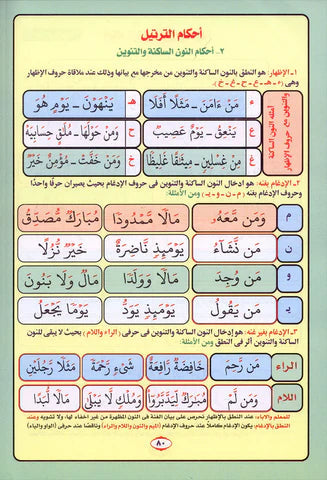 أحكام الترتيل
٢ـ أحكام النون الساكنة والتنوين
١ـ الإظهار: هو النطق بالنون الساكنة والتنوين من مخرجها مع بيانها وذلك عند ملاقاة حروف الإظهار
وهى (ء - هـ - ع - ح - غ - خ)
أمثلة النون الساكنة
والتنوين مع حروف الإظهار
ء مَنْ ءَامَنَ - مَثَلًا أَفَلَا هـ يَنْهَوْنَ - يَوْمٍ هُوَ
ع يَنْعِقُ - يَوْمٌ عَصِيبٌ ح وَمَنْ حَوْلَهَا - مُلَقٍ حِسَابِيَهْ
غ مِنْ غِسْلِينٍ - مِيثَاقًا غَلِيظًا خ وَمَنْ خَفَّتْ - مُؤْمِنٌ خَيْرٌ
٢ـ الإدغام بغنه: هو ادخال النون الساكنة والتنوين فى حروف الإدغام بحيث يصيران حرفًا واحدًا
(م - ن - و - يـ) ومن الأمثلة:
م وَمَن مَّعَهُ مَالًا مَّمْدُودًا مُبَارَكٌ مُّصَدِّقُ
ن مَن نَّشَآءُ يَوْمَئِذٍ نَّاضِرَةٌ خَيْرٌ نُّزُلًا
و مَن وُجِدَ مَالًا وَوَلَدًا مَالٌ وَلَا بَنُونَ
يـ مَن يَقُولُ يَوْمَئِذٍ يَوَدُّ يَوْمًا يَجْعَلُ
٣ـ الإدغام بغير غنه: هو إدخال النون الساكنة والتنوين فى حرفى (الراء واللام) بحيث لا يبقى للنون
الساكنة والتنوين أثر فى النطق ومن الأمثلة:
الراء مَن رَّحِمَ خَافِضَةٌ رَّافِعَةٌ شَىْءٍ رَّحْمَةً مَثَلًا رَّجُلَيْنِ
اللام وَمَن لَّمْ مُبَارَكٌ لِّيَدَّبَّرُوا وَمُلْكٍ لَّا يَبْلَى مَالًا لُّبَدًا
للمعلم والاباء: عند النطق بالإظهار نحرص على بيان الغنة فى النون المظهرة من غير اخفاء لها، ولا تشويه وعند
النطق بالإدغام، يكون الإدغام كاملًا عند حروف (الميم والنون واللام والراء) وناقصًا عند حرفى (الواو والياء)
٨٠